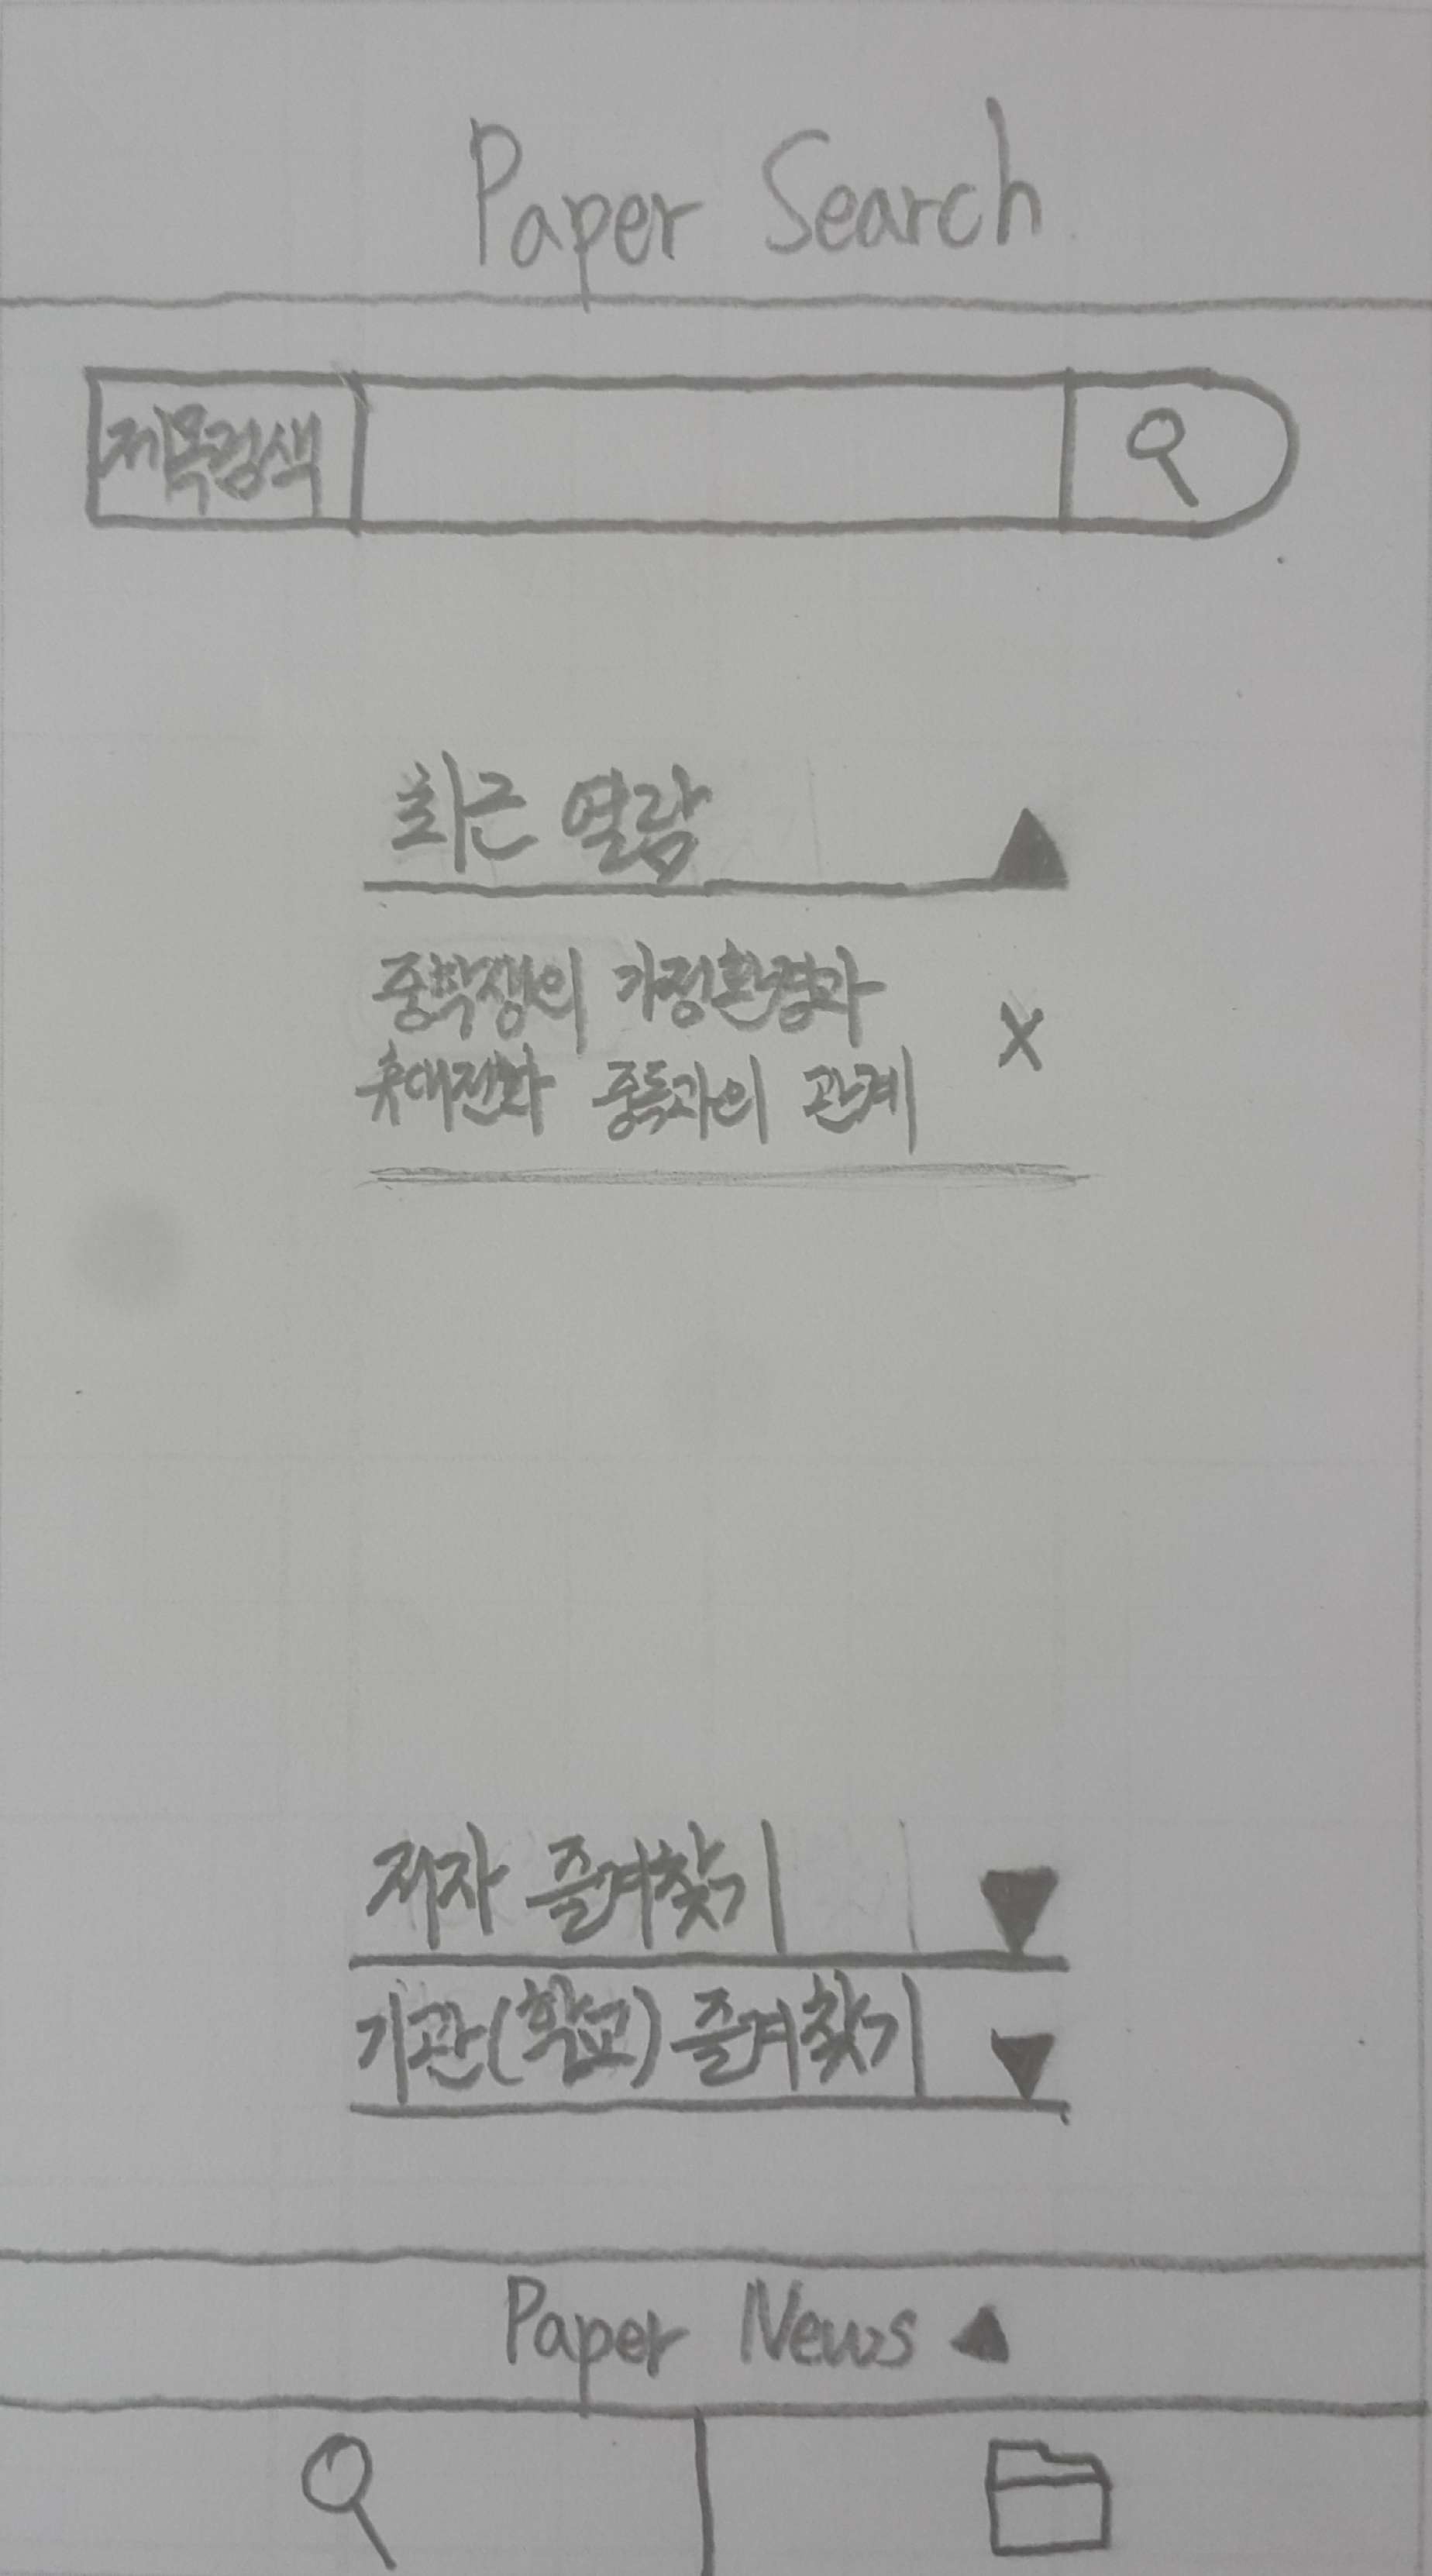 Paper Search
제목검색
최근 열람
중학생의 가정환경과
휴대전화 중독과의 관계
X
저자 즐겨찾기
기관(학교) 즐겨찾기
Paper News